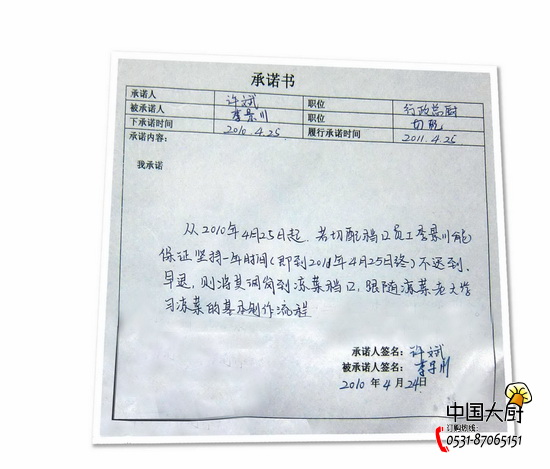 承诺书
承诺人 许斌 职位 行政总厨
被承诺人 李景川 职位 切配
下承诺时间 2010.4.25 履行承诺时间 2011.4.25
承诺内容:
我承诺
从2010年4月25日起,若切配档口员工李景川能
保证坚持一年时间(即到2011年4月25日终)不迟到、
早退,则将其调岗到凉菜档口,跟随凉菜老大学
习凉菜的基本制作流程
承诺人签名: 许斌
被承诺人签名: 李景川
2010 年 4 月 24 日
中国大厨
订购热线:
0531-87065151